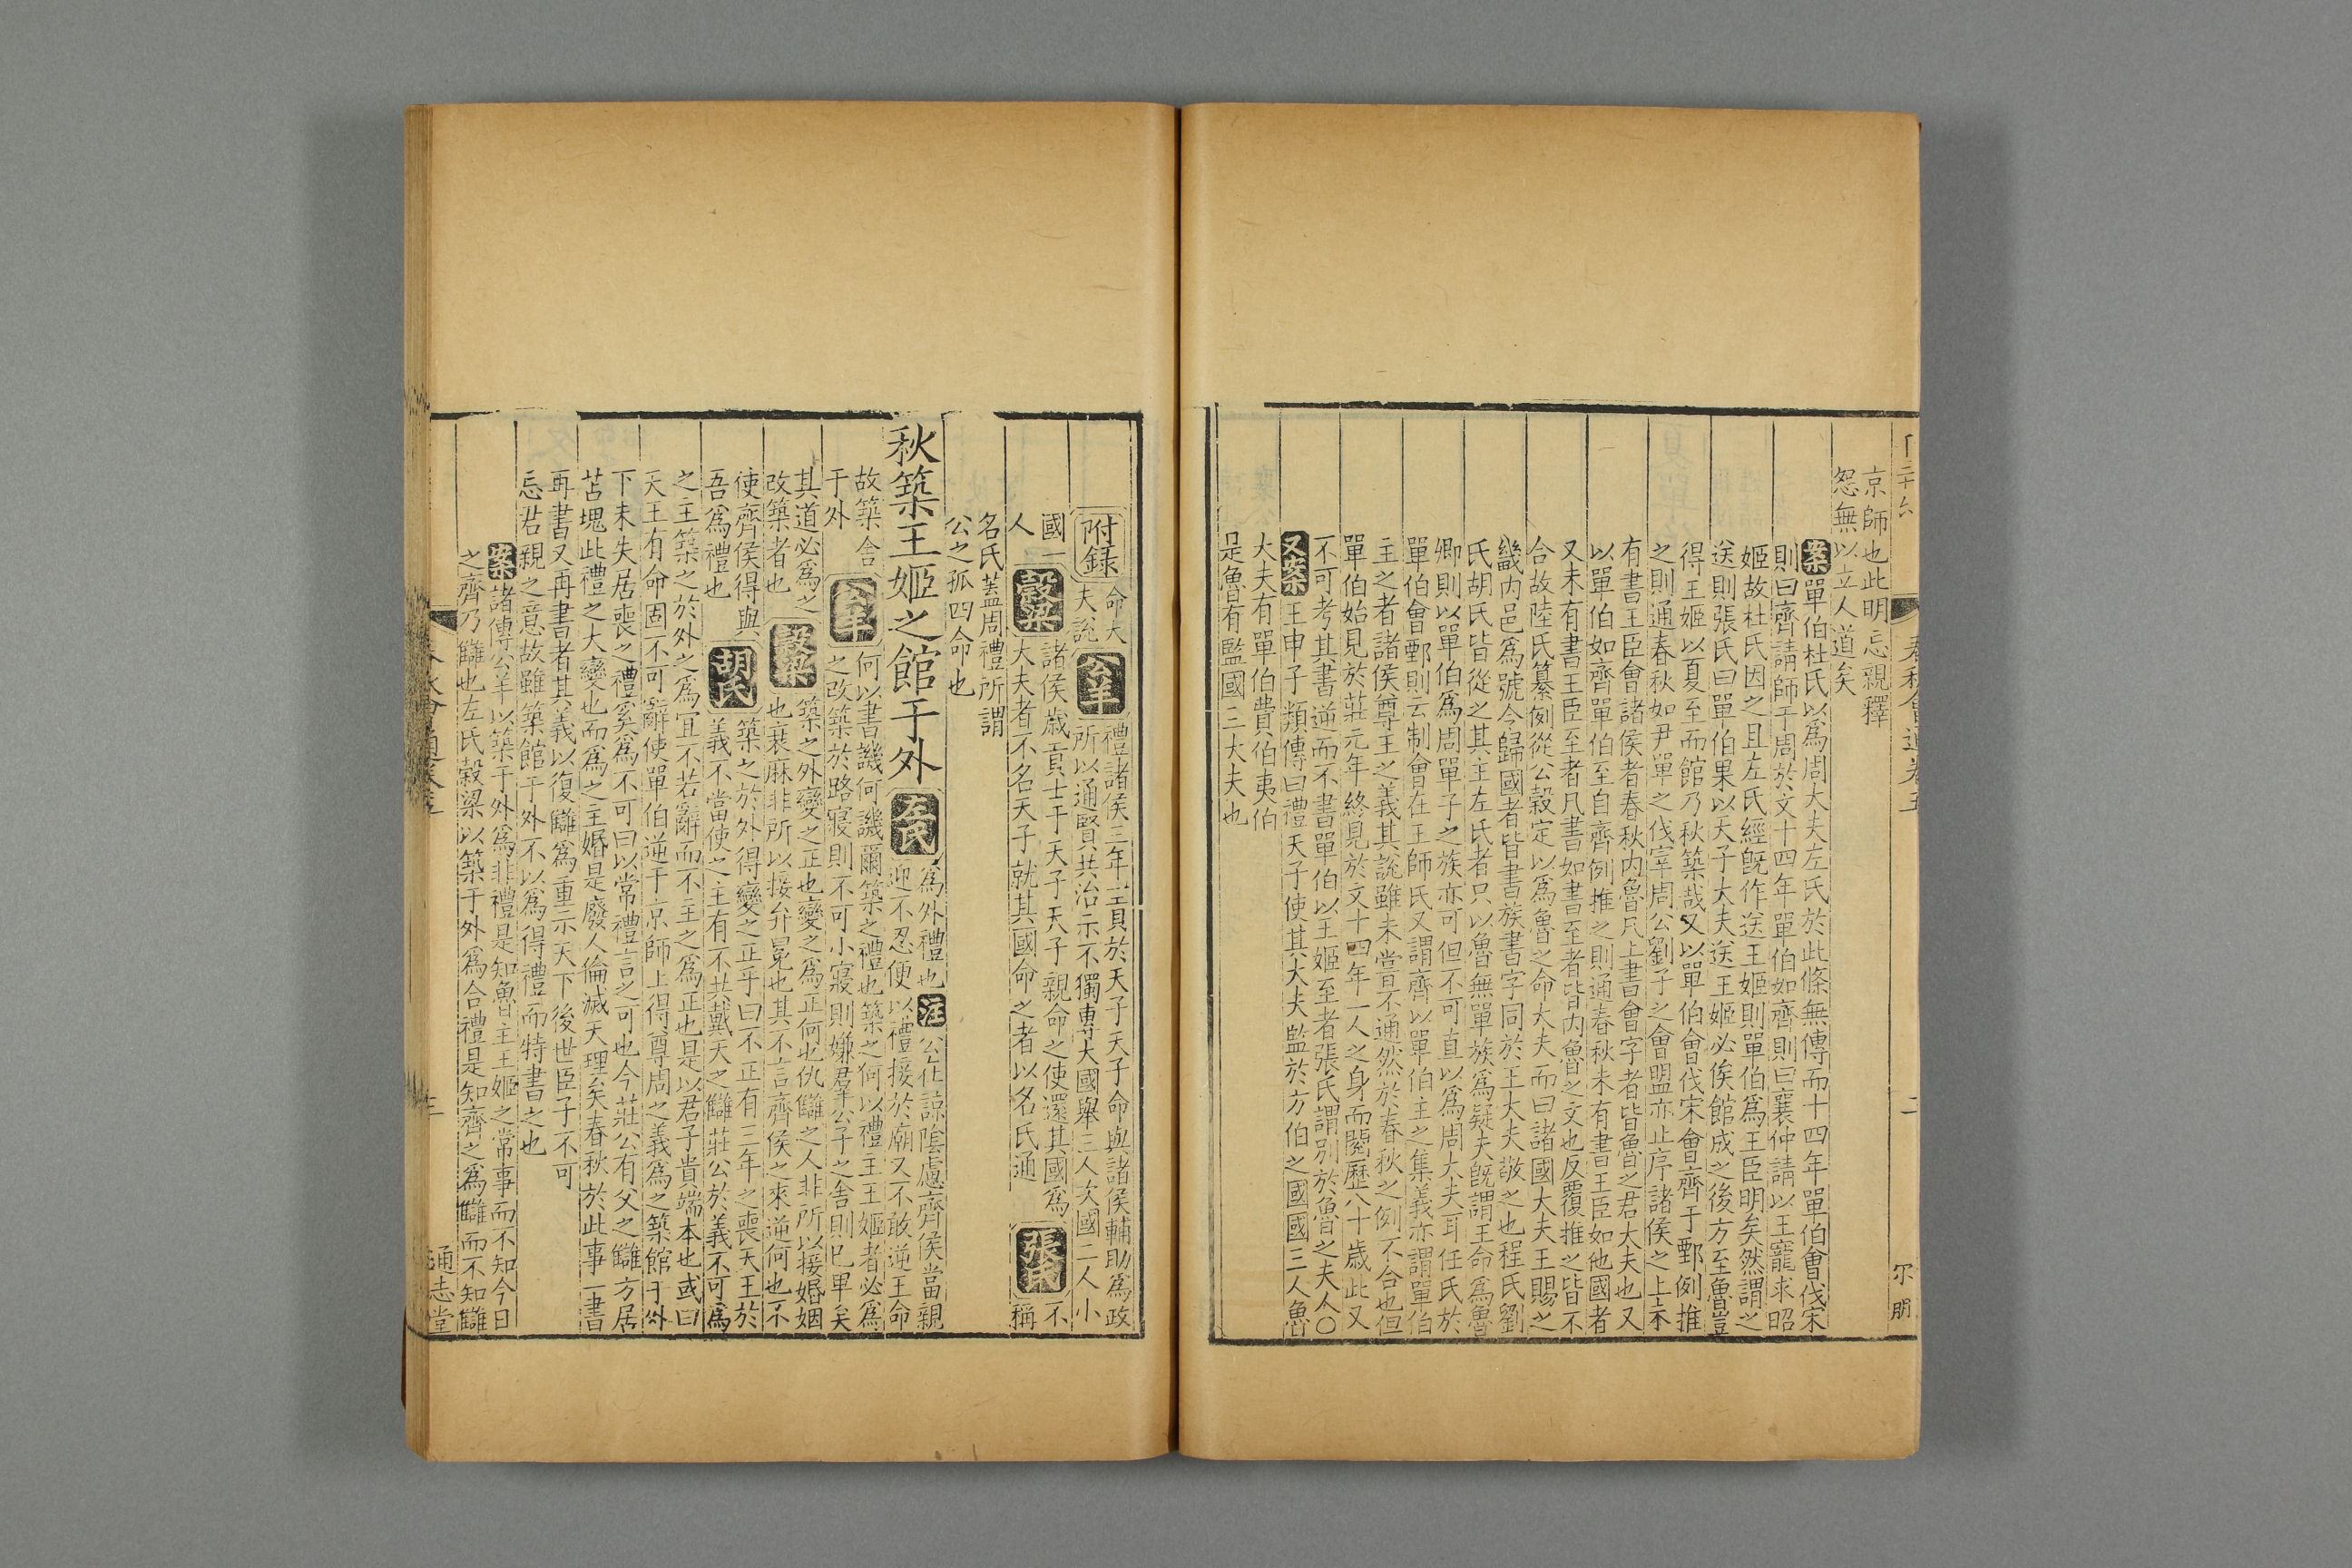 京師也此明忘親釋
怨無以立人道矣
案單伯杜氏以爲周大夫左氏於此條無傳而十四年單伯會伐宋
則曰齊請師于周於文十四年單伯如齊則曰襄仲請以王寵求昭
姬故杜氏因之且左氏經旣作送王姬則單伯爲王臣明矣然謂之
送則張氏曰單伯果以天子大夫送王姬必俟館成之後方至魯豈
得王姬以夏至而館乃秋築哉又以單伯會伐宋會齊于鄄例推
之則通春秋如尹單之伐宰周公劉子之會盟亦止序諸侯之上未
有書王臣會諸侯者春秋内魯凡上書會字者皆魯之君大夫也又
以單伯如齊單伯至自齊例推之則通春秋未有書王臣如他國者
又未有書王臣至者凡書如書至者皆内魯之文也反覆推之皆不
合故陸氏纂例從公穀定以爲魯之命大夫而曰諸國大夫王賜之
畿内邑爲號今歸國者皆書族書字同於王大夫敬之也程氏劉
氏胡氏皆從之其主左氏者只以魯無單族爲疑夫旣謂王命爲魯
卿則以單伯爲周單子之族亦可但不可直以爲周大夫耳任氏於
單伯會鄄則云制會在王師氏又謂齊以單伯主之集義亦謂單伯
主之者諸侯尊王之義其說雖未嘗不通然於春秋之例不合也但
單伯始見於莊元年終見於文十四年一人之身而閱歷八十歲此又
不可考其書逆而不書單伯以王姬至者張氏謂別於魯之夫人〇
又案王申子類傳曰禮天子使其大夫監於方伯之國國三人魯
大夫有單伯費伯夷伯
是魯有監國三大夫也
春秋會通卷五
二
附錄命大
夫說公羊禮諸侯三年一貢於天子天子命與諸侯輔助爲政
所以通賢共治示不獨專大國舉三人次國二人小
國一
人穀梁諸侯歲貢士于天子天子親命之使還其國爲
大夫者不名天子就其國命之者以名氏通張氏不
稱
名氏蓋周禮所謂
公之孤四命也
秋築王姬之館于外左氏爲外禮也注公在諒陰慮齊侯當親
迎不忍便以禮接於廟又不敢逆王命
故築舍
于外公羊何以書譏何譏爾築之禮也築之何以禮主王姬者必爲
之改築於路寢則不可小寢則嫌羣公子之舍則已卑矣
其道必爲之
改築者也穀梁築之外變之正也變之爲正何也仇讎之人非所以接婚姻
也衰麻非所以接弁冕也其不言齊侯之來逆何也不
使齊侯得與
吾爲禮也胡氏築之於外得變之正乎曰不正有三年之喪天王於
義不當使之主有不共戴天之讎莊公於義不可爲
之主築之於外之爲宜不若辭而不主之爲正也是以君子貴端本也或曰
天王有命固不可辭使單伯逆于京師上得尊周之義爲之築館于外
下未失居喪之禮奚爲不可曰以常禮言之可也今莊公有父之讎方居
苫塊此禮之大變也而爲之主婚是廢人倫滅天理矣春秋於此事一書
再書又再書者其義以復讎爲重示天下後世臣子不可
忘君親之意故雖築館于外不以爲得禮而特書之也
案諸傳公羊以築于外爲非禮是知魯主王姬之常事而不知今日
之齊乃讎也左氏穀梁以築于外爲合禮是知齊之爲讎而不知讎
通志堂